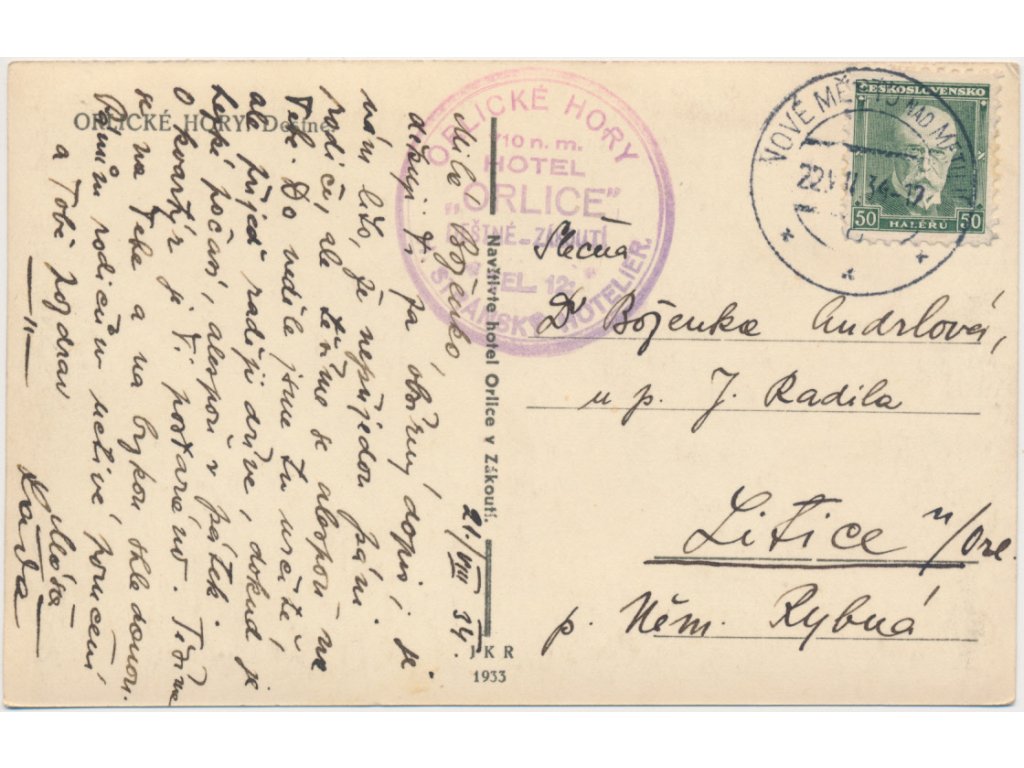 ORLICKÉ HORY Deštné
21/VIII 34.
Milá Boženko,
děkuji Ti za obšírný dopis, je
nám líto, že nepřijedou páni
rodiče, ale těšíme se alespoň na
Tebe. Do neděle jsme tu určitě,
ale přijeď raději dříve, dokud je
hezké počasí, alespoň v pátek.
O kvartýr je Ti postaráno. Těšíme
se na Tebe a na
Páním rodičům uctivé poručení
a Tobě pozdrav
Láďa
ORLICKÉ HORY
710 n. m.
HOTEL
„ORLICE“
DEŠTNÉ-ZÁKOUTÍ
TEL. 12.
STRÁNSKÝ HOTELIER.
Navštivte hotel Orlice v Zákoutí.
JKR
1933
NOVÉ MĚSTO NAD METUJÍ
22.VIII 34-12
ČESKOSLOVENSKO
50 HALÉŘŮ 50
Slečna
Dr Boženka Andrlová,
u p. J. Radila
Litice n/Orl.
p. Něm. Rybná